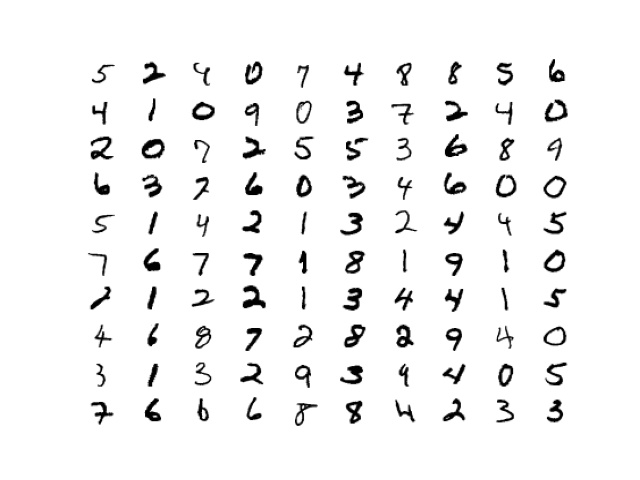 5 2 4 0 7 4 8 8 5 6
4 1 0 9 0 3 7 2 4 0
2 0 7 2 5 5 3 6 8 9
6 3 7 6 0 3 4 6 0 0
5 1 4 2 1 3 2 4 4 5
7 6 7 7 1 8 1 9 1 0
2 1 2 2 1 3 4 4 1 5
4 6 8 7 2 8 2 9 4 0
3 1 3 2 9 3 9 4 0 5
7 6 6 6 8 8 4 2 3 3